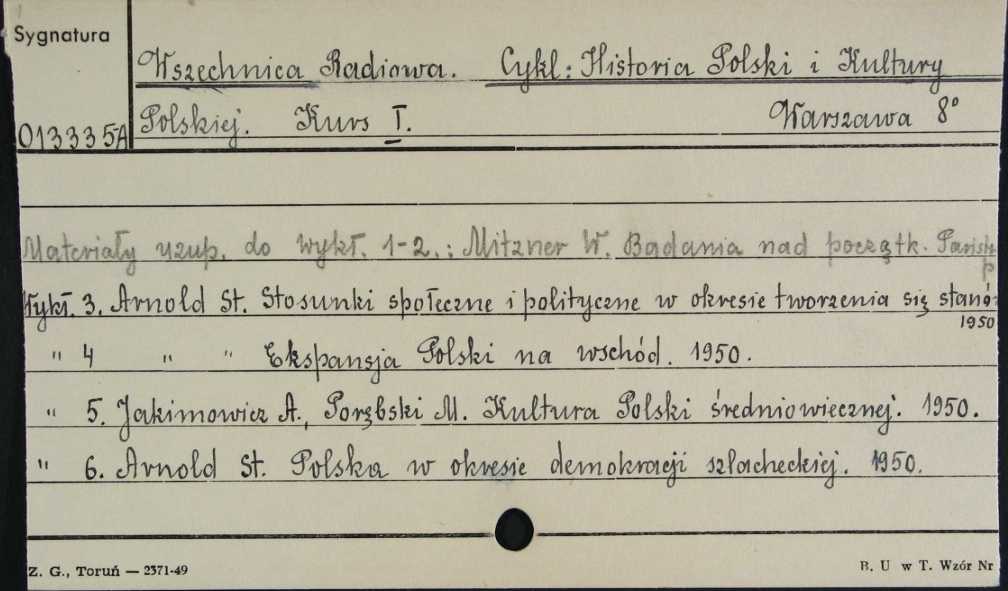 Sygnatura
Wszechnica Radiowa. Cykl: Historia Polski i Kultury
013335A Polskiej. Kurs I. Warszawa 8°
Materiały uzup. do wykł. 1-2.: Mitzner W. Badania nad początk. Państ
p
Wykł. 3. Arnold St. Stosunki społeczne i polityczne w okresie tworzenia się stanó
1950
" 4 " " Ekspansja Polski na wschód. 1950.
" 5. Jakimowicz A., Porębski M. Kultura Polski średniowiecznej. 1950.
" 6. Arnold St. Polska w okresie demokracji szlacheckiej. 1950.
Z. G., Toruń — 2371-49
B. U w T. Wzór Nr